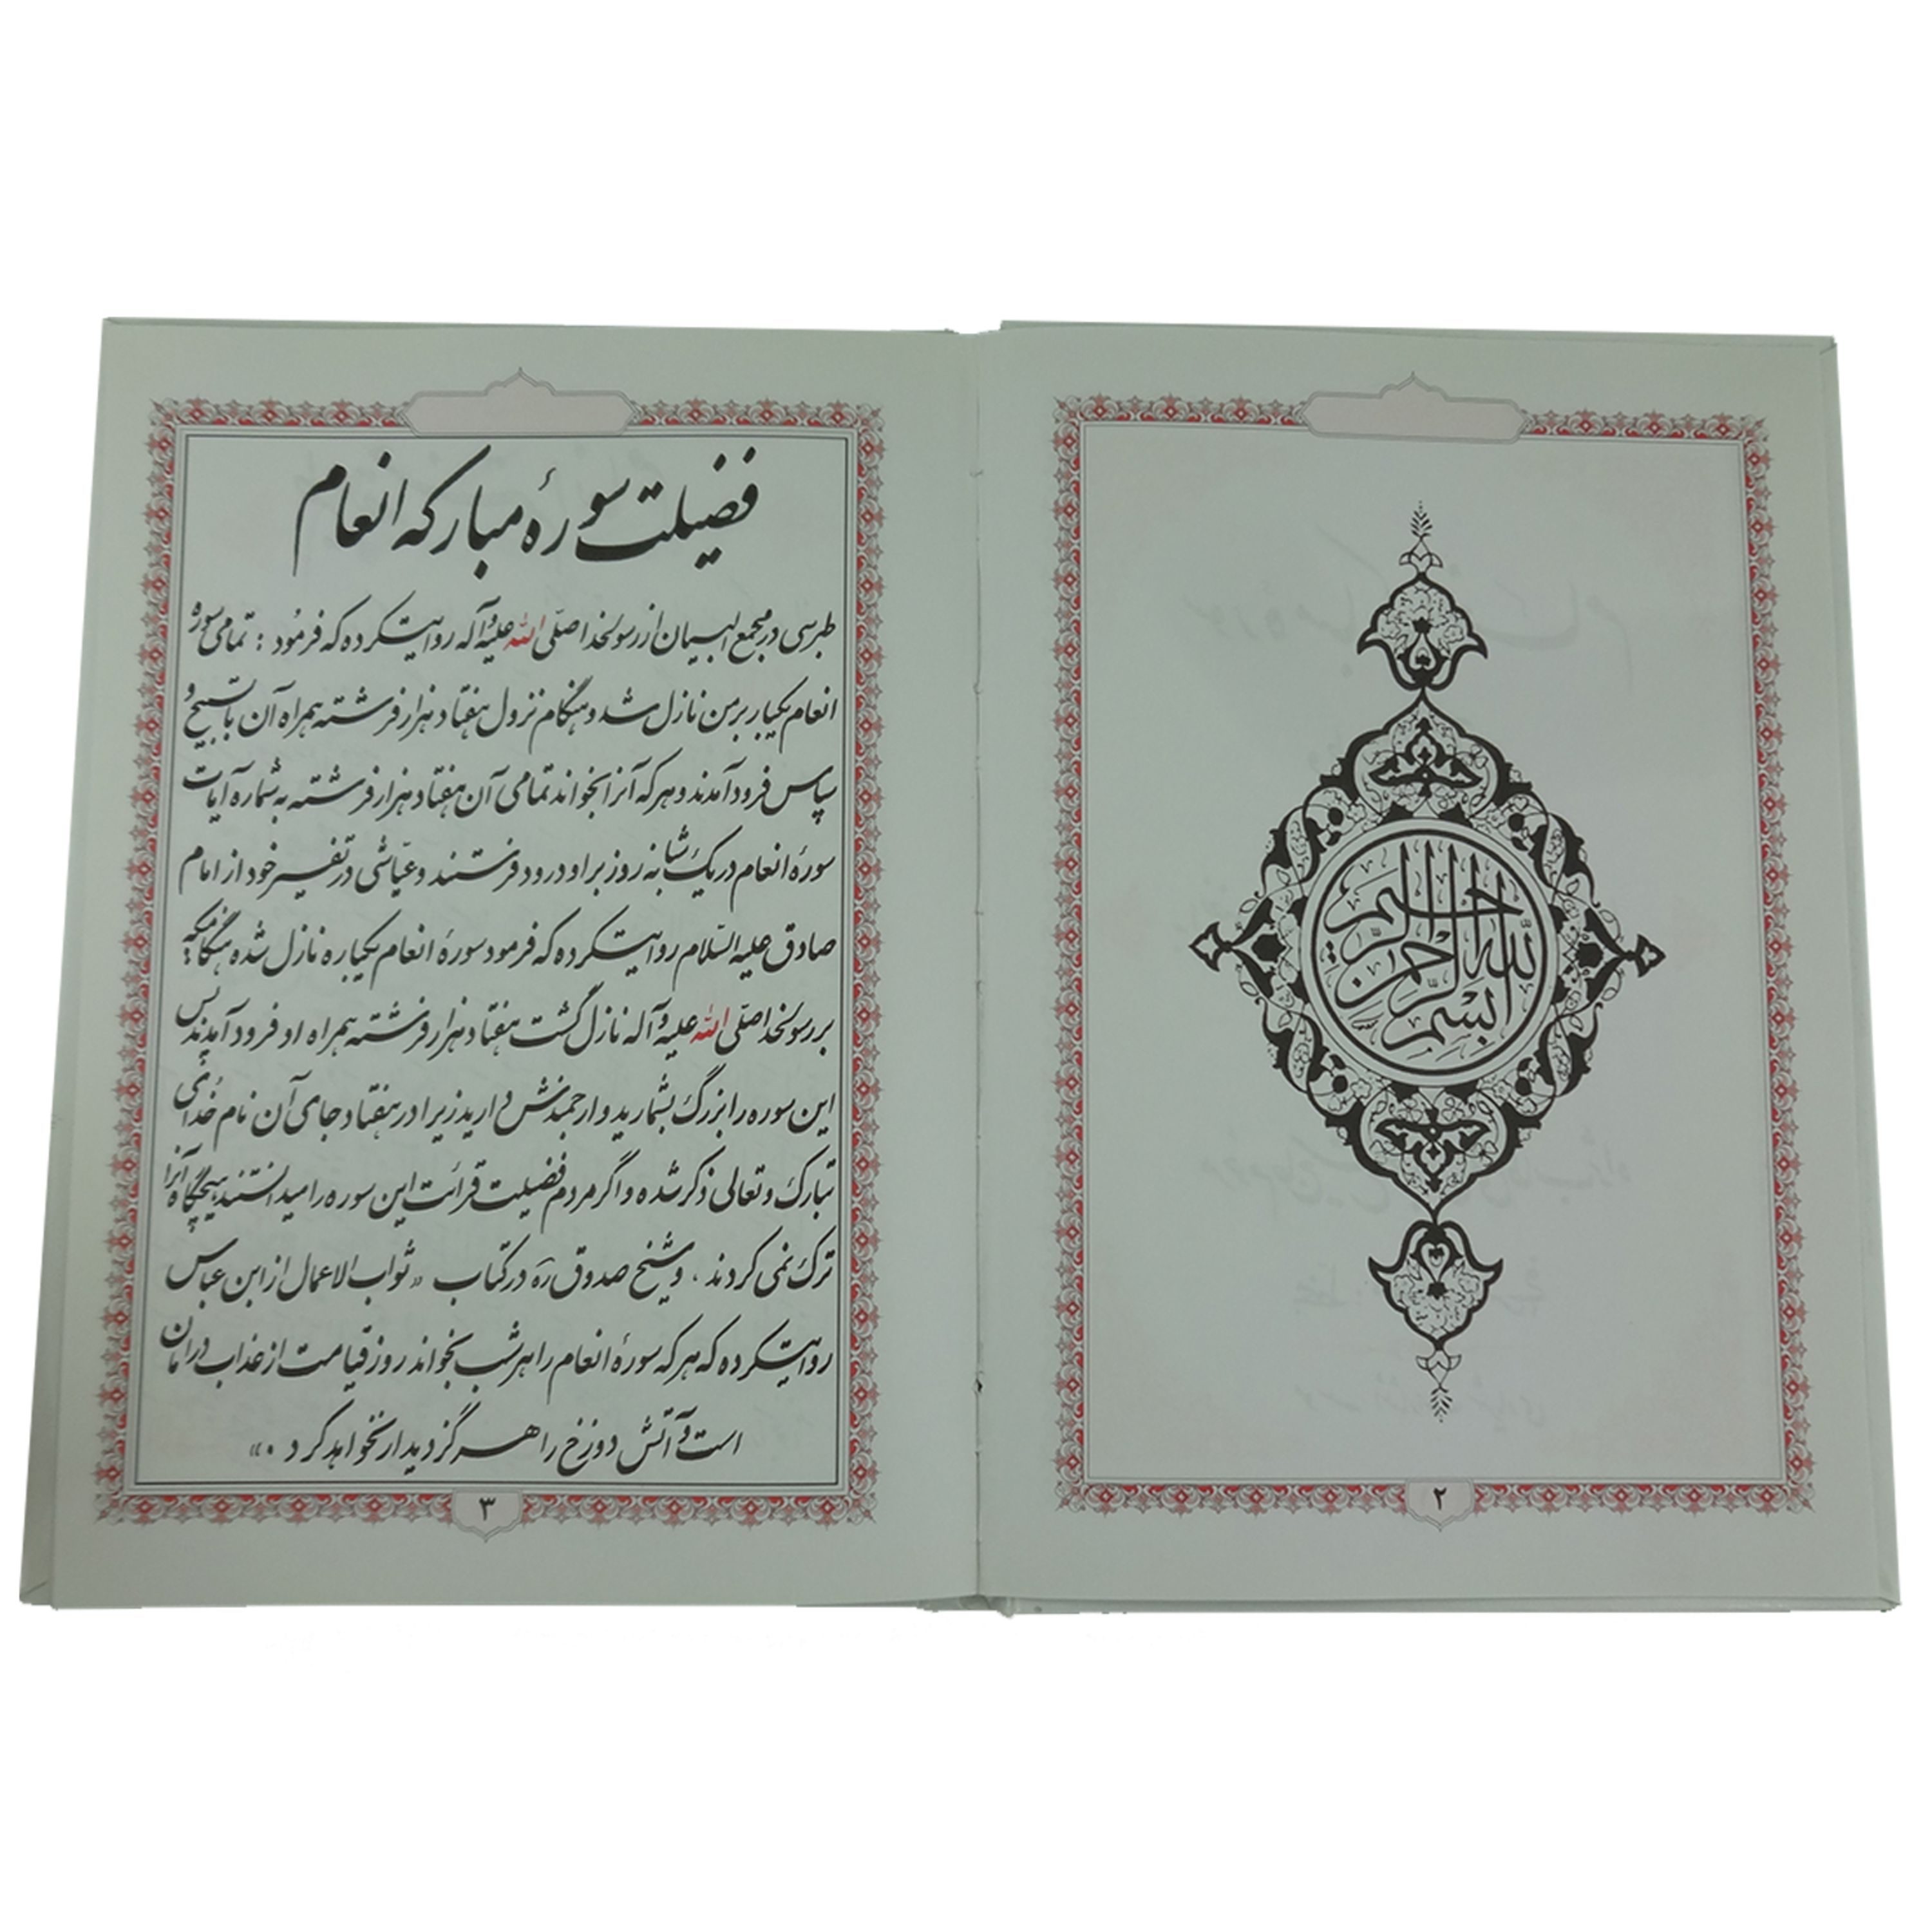 بسم الله الرحمن الرحیم
۲
فضیلت سورهٔ مبارکه انعام
طبرسی در مجمع البیان از رسولخدا صلّی الله علیه وآله روایتکرده که فرمُود : تمامی سوره
انعام یکبار بر من نازل شد و هنگام نزول هفتاد هزار فرشته همراه آن با تسبیح و
سپاس فرود آمدند و هر که آنرا بخواند تمامی آن هفتاد هزار فرشته به شماره آیات
سورهٔ انعام در یک شبانه روز بر او درود فرستند و عیّاشی در تفسیر خود از امام
صادق علیه السّلام روایتکرده که فرمود سورهٔ انعام یکباره نازل شده هنگامیکه
بر رسولخدا صلّی الله علیه وآله نازل گشت هفتاد هزار فرشته همراه او فرود آمدند پس
این سوره را بزرگ بشمارید و ارجمندش دارید زیرا در هفتاد جای آن نام خُدای
تبارک و تعالی ذکر شده و اگر مردم فضیلت قرائت این سوره را میدانستند هیچگاه آنرا
ترک نمی کردند ، و شیخ صدوق ره در کتاب « ثواب الاعمال از ابن عباس
روایتکرده که هر که سورهٔ انعام را هر شب بخواند روز قیامت از عذاب در امان
است و آتش دوزخ را هرگز دیدار نخواهد کرد .»
۳